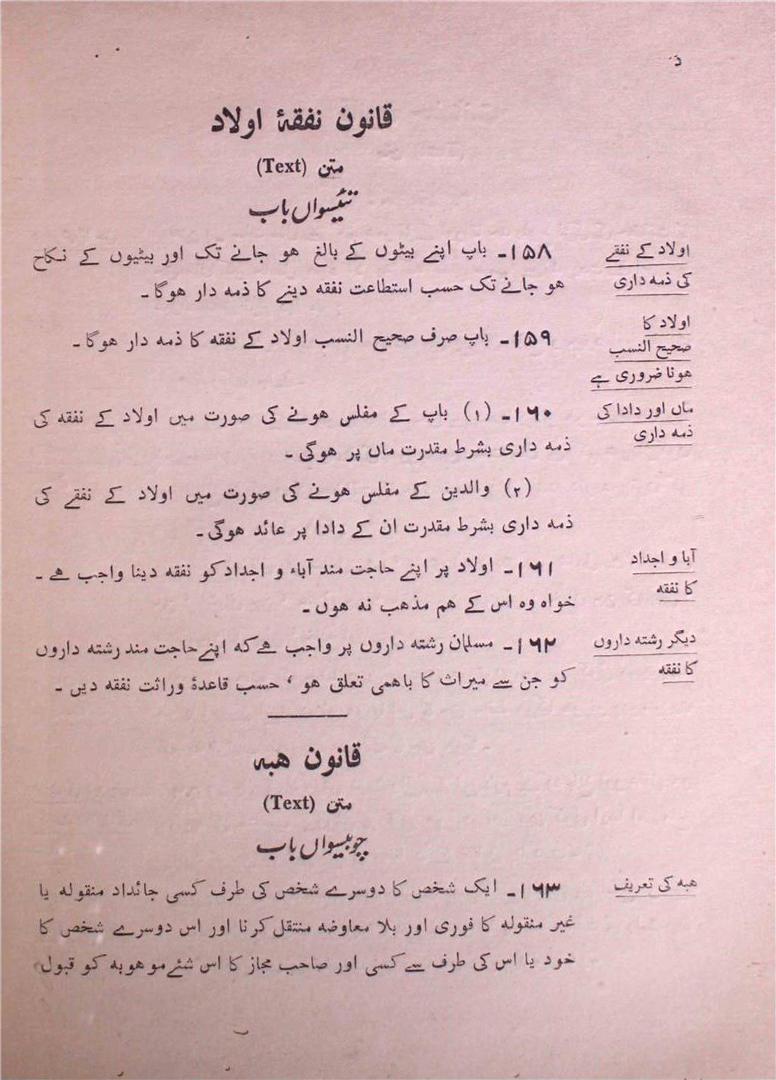 د
قانون نفقۂ اولاد
متن (Text)
تئیسواں باب
اولاد کے نفقے
کی ذمہ داری
۱۵۸۔ باپ اپنے بیٹوں کے بالغ ہو جانے تک اور بیٹیوں کے نکاح
ہو جانے تک حسب استطاعت نفقہ دینے کا ذمہ دار ہوگا۔
اولاد کا
صحیح النسب
ہونا ضروری ہے
۱۵۹۔ باپ صرف صحیح النسب اولاد کے نفقہ کا ذمہ دار ہوگا۔
ماں اور دادا کی
ذمہ داری
۱۶۰۔ (۱) باپ کے مفلس ہونے کی صورت میں اولاد کے نفقہ کی
ذمہ داری بشرط مقدرت ماں پر ہوگی۔
(۲) والدین کے مفلس ہونے کی صورت میں اولاد کے نفقے کی
ذمہ داری بشرط مقدرت ان کے دادا پر عائد ہوگی۔
آبا و اجداد
کا نفقہ
۱۶۱۔ اولاد پر اپنے حاجت مند آباء و اجداد کو نفقہ دینا واجب ہے۔
خواہ وہ اس کے ہم مذہب نہ ہوں۔
دیگر رشتہ داروں
کا نفقہ
۱۶۲۔ مسلمان رشتہ داروں پر واجب ہے کہ اپنے حاجت مند رشتہ داروں
کو جن سے میراث کا باہمی تعلق ہو ، حسب قاعدۂ وراثت نفقہ دیں۔
قانون ہبہ
متن (Text)
چوبیسواں باب
ہبہ کی تعریف
۱۶۳۔ ایک شخص کا دوسرے شخص کی طرف کسی جائداد منقولہ یا
غیر منقولہ کا فوری اور بلا معاوضہ منتقل کرنا اور اس دوسرے شخص کا
خود یا اس کی طرف سے کسی اور صاحب مجاز کا اس شئے موہوبہ کو قبول